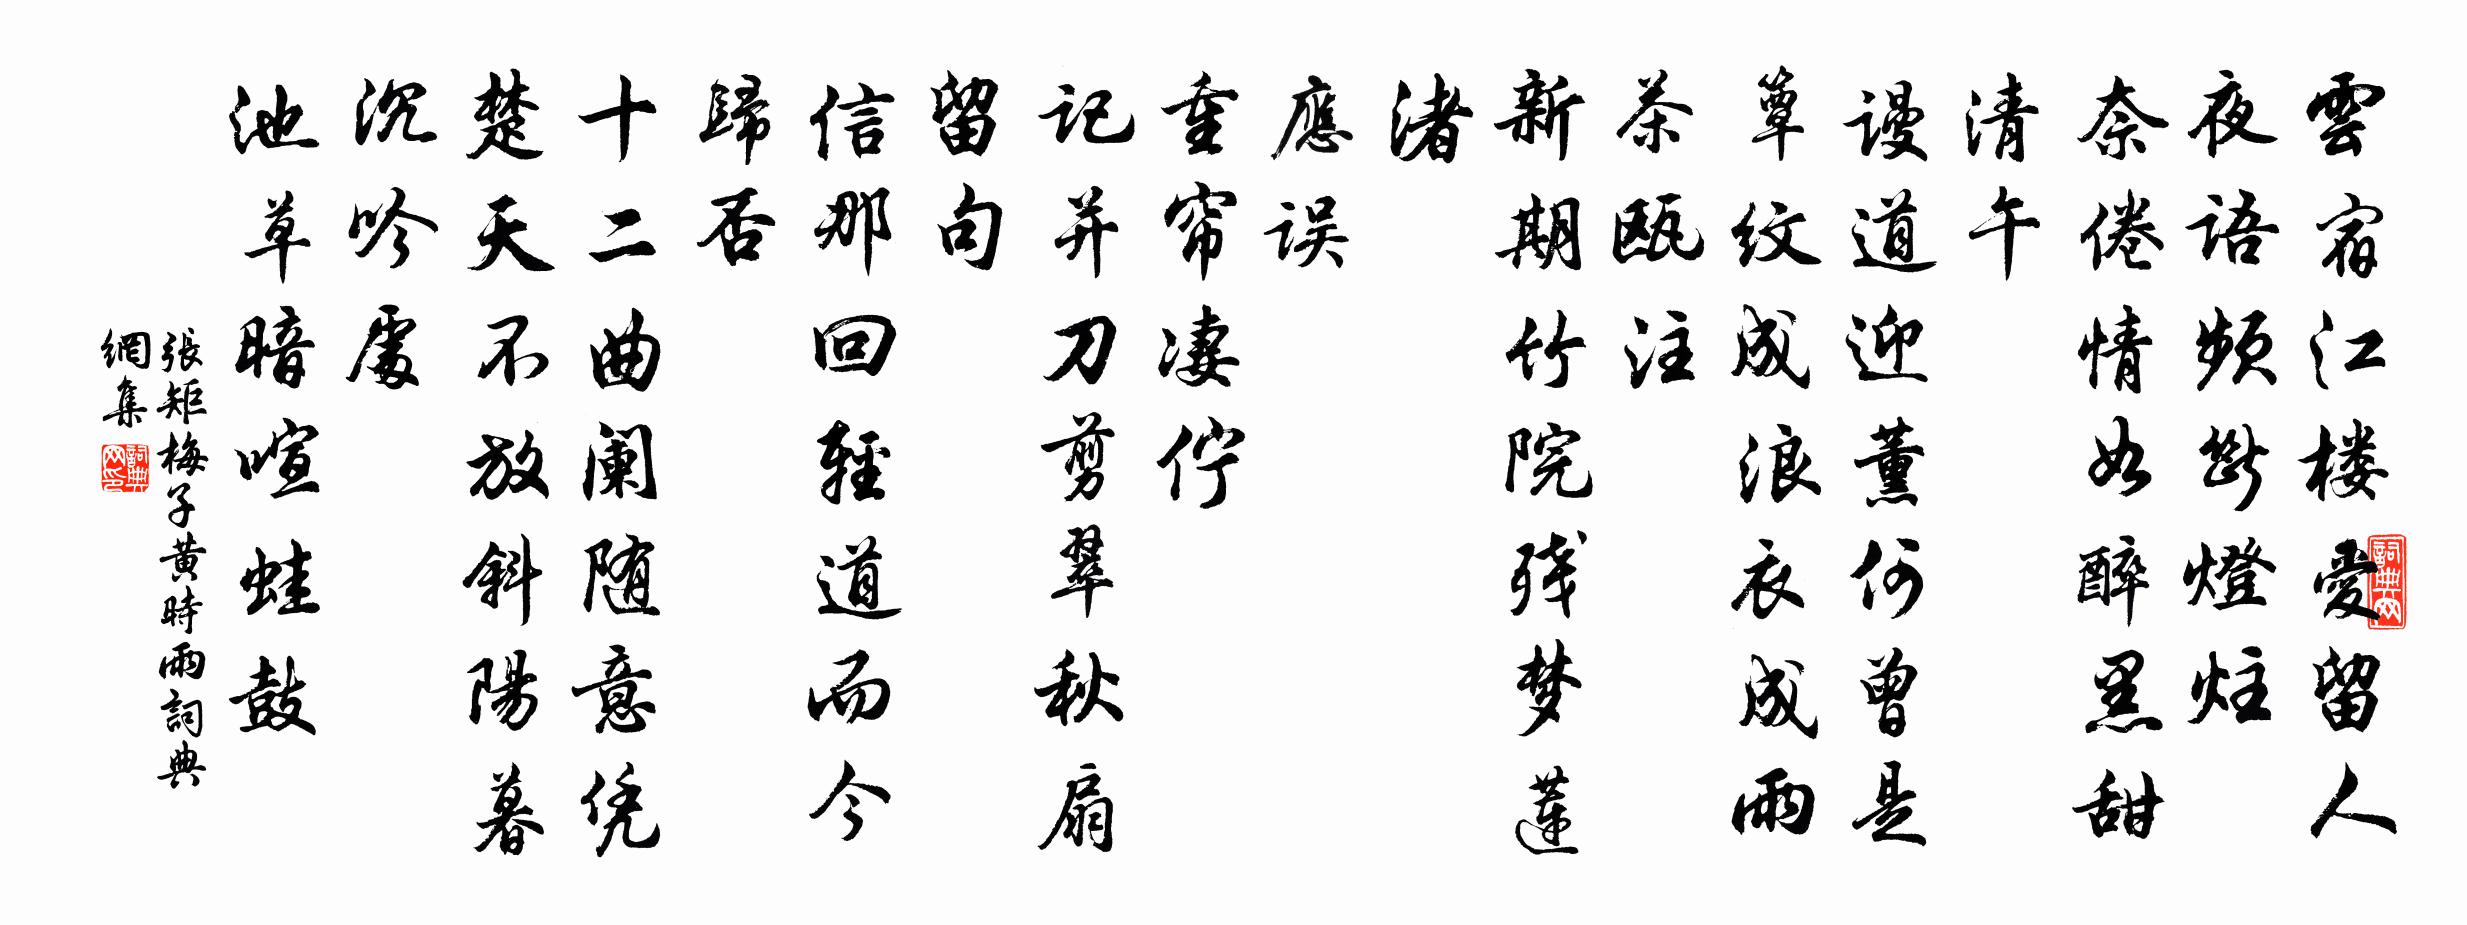 雲宿江楼愛留人
夜語頻斷燈炷
奈倦情如醉黑甜
清午
謾道迎薰何曾是
簟纹成浪衣成雨
茶瓯注
新期竹院残梦蓮
渚
應误
重帘凄佇
记并刀剪翠秋扇
留句
信那回輕道而今
歸否
十二曲阑随意凭
楚天不放斜陽暮
沉吟處
池草暗喧蛙鼓
張矩梅子黄時雨詞典
網集
詞典网
詞典网印